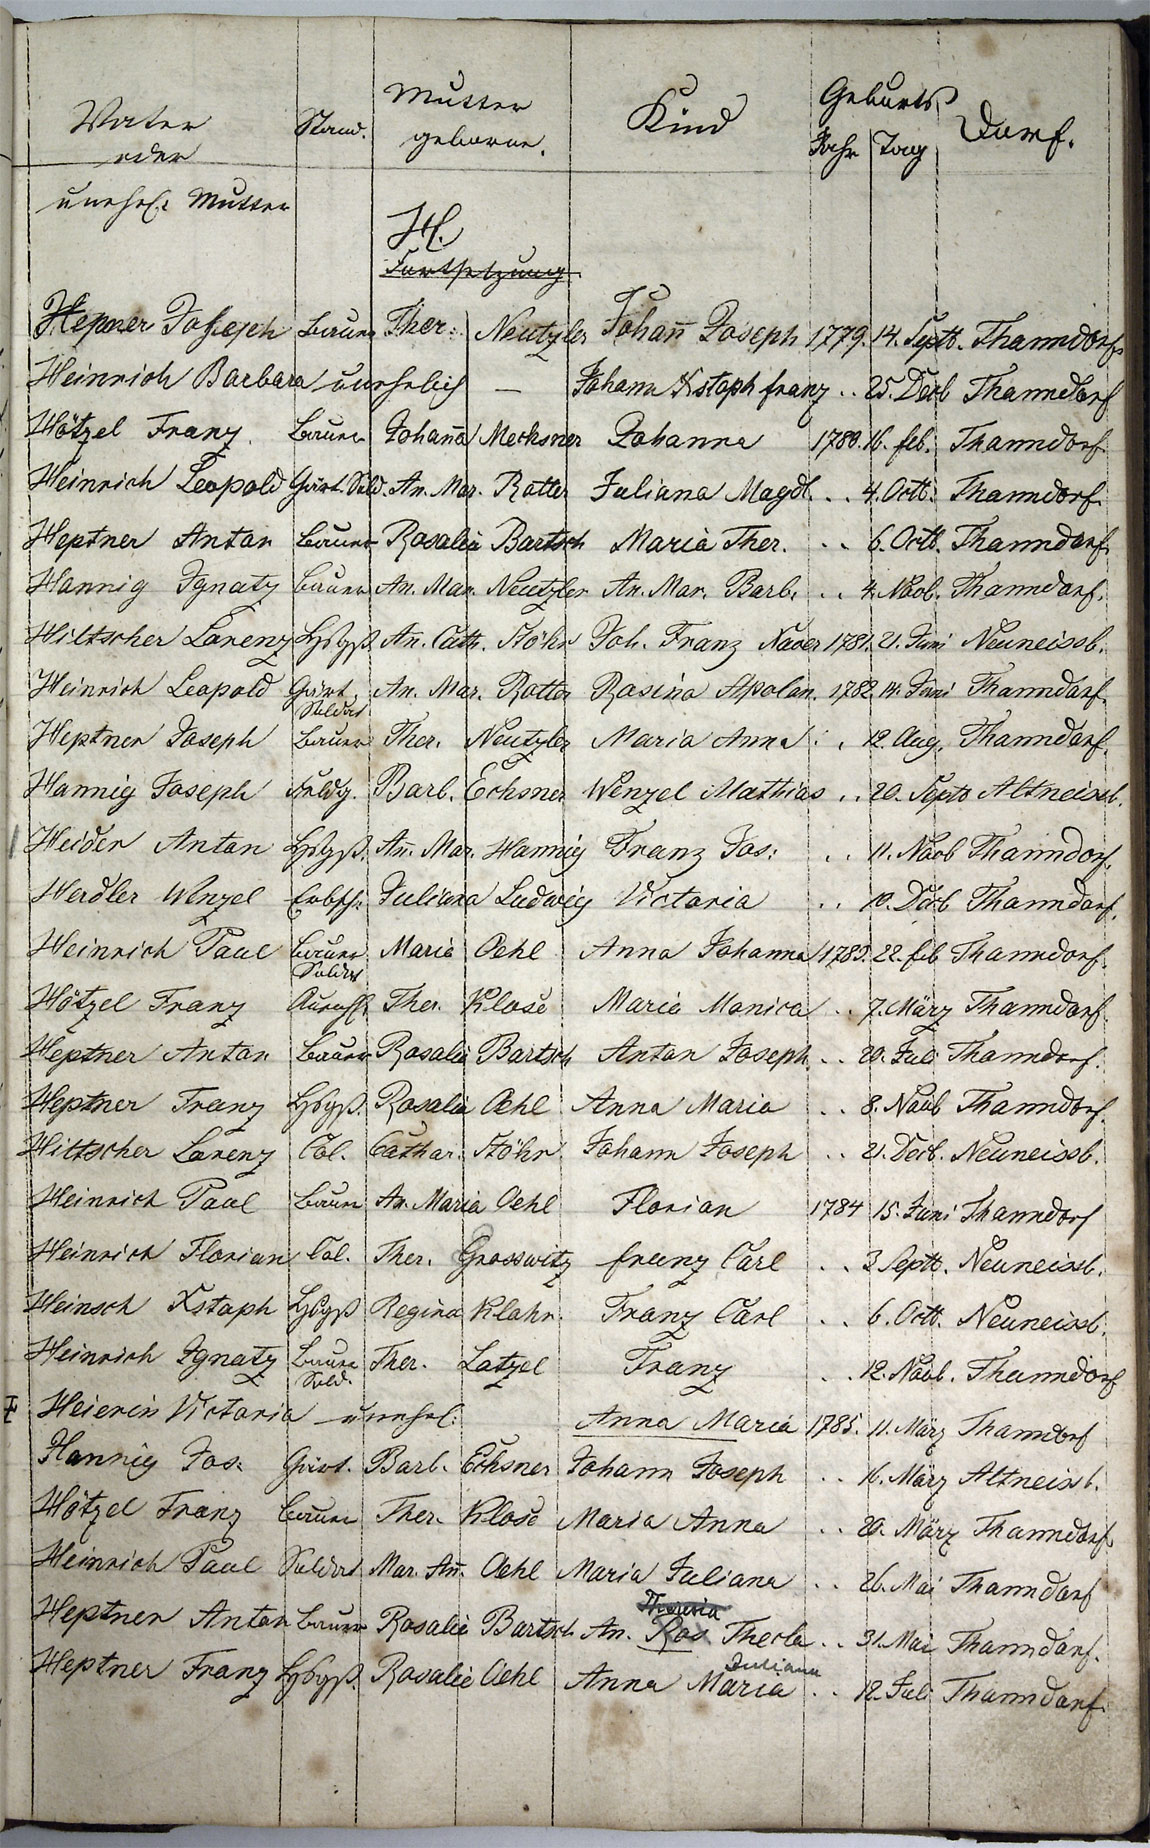 Vater oder unehel. Mutter | Stand. | Mutter geborne. | Kind | Geburts Jahr | Tag | Dorf.
H.
Fortsetzung
Hepner Joseph Bauer Ther: Neutzler Johan̄ Joseph 1779. 14. Septb. Thanndorf.
Heinrich Barbara unehelich — Johann Xstoph Franz .. 25. Decb Thanndorf
Hötzel Franz Bauer Johan̄a Mechsner Johanna 1780. 16. Feb. Thanndorf.
Heinrich Leopold Gärt. Sold. An. Mar. Rotter Juliana Magdl. .. 4. Octb. Thanndorf.
Heptner Anton Bauer Rosalia Bartsch Maria Ther. .. 6. Octb. Thanndorf.
Hannig Ignatz Bauer An. Mar. Neutzler An. Mar. Barb. .. 4. Novb. Thanndorf.
Hiltscher Lorenz An. Cath. Stöhr Joh. Franz Xaver 1781. 21. Juni Neuneissb.
Heinrich Leopold Gärt. Soldat An. Mar. Rotter Rosina Apolon. 1782. 14. Juni Thanndorf.
Heptner Joseph Bauer Ther. Neutzler Maria Anna .. 12. Aug. Thanndorf.
Hannig Joseph Barb. Echsner Wenzel Mathias .. 20. Septb Altneissb.
Heider Anton An̄. Mar. Hannig Franz Jos: .. 11. Novb Thanndorf.
Herdler Wenzel Juliana Ludwig Victoria .. 10. Decb Thanndorf.
Heinrich Paul Bauer Soldat Maria Oehl Anna Johanna 1783. 22. Feb Thanndorf.
Hötzel Franz Ther. Klose Maria Monica .. 7. März Thanndorf.
Heptner Anton Bauer Rosalia Bartsch Anton Joseph .. 20. Juli Thanndorf.
Heptner Franz Rosalia Oehl Anna Maria .. 8. Novb Thanndorf.
Hiltscher Lorenz Col. Cathar. Stöhr Johann Joseph .. 21. Decb. Neuneissb.
Heinrich Paul Bauer An. Maria Oehl Florian 1784 15. Juni Thanndorf
Heinrich Florian Col. Ther. Grosswitz Franz Carl .. 3 Septb. Neuneissb.
Heinsch Xstoph Regina Klahr. Franz Carl .. 6. Octb. Neuneissb.
Heinrich Ignatz Bauer Sold. Ther. Latzel Franz .. 12. Novb. Thanndorf
Heierin Victoria unehel: Anna Maria 1785. 11. März Thanndorf
Hannig Jos. Gärt. Barb. Echsner Johann Joseph .. 16. März Altneissb.
Hötzel Franz Bauer Ther. Klose Maria Anna .. 20. März Thanndorf
Heinrich Paul Soldat Mar. An̄. Oehl Maria Juliana .. 26. Mai Thanndorf
Theresia
Heptner Anton Bauer Rosalie Bartsch An. Ros Thecla .. 31. Mai Thanndorf.
Juliana
Heptner Franz Rosalie Oehl Anna Maria .. 12. Juli Thanndorf.